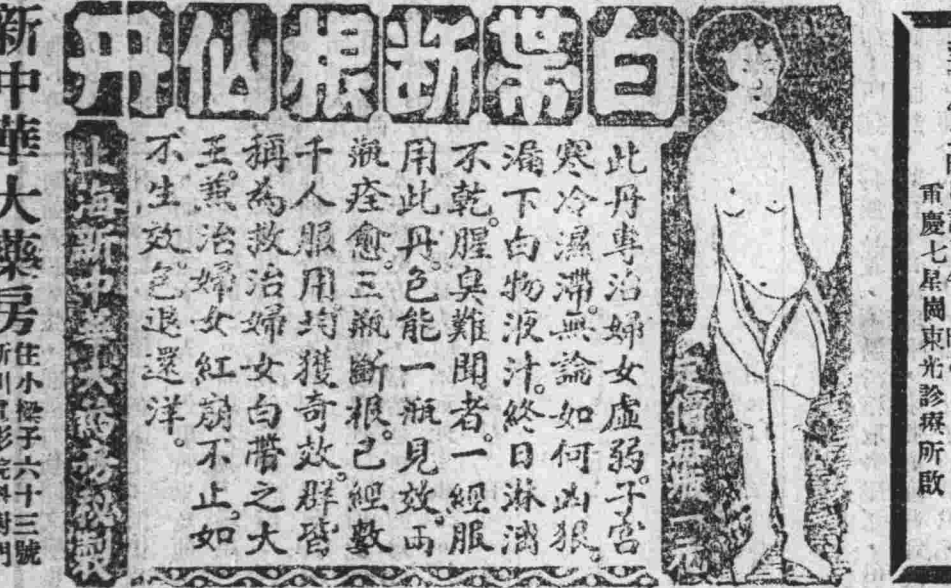 重慶七星崗東光診療所啟
白帶断根仙丹
此丹專治婦女虛弱。子宮
寒冷濕滯。無論如何凶狠。
漏下白物液汁。終日淋漓
不乾。腥臭難聞者。一經服
用此丹。包能一瓶見效。両
瓶痊愈。三瓶斷根。已經數
千人服用均獲奇效。群皆
稱為救治婦女白帶之大
王。兼治婦女紅崩不止。如
不生效。包退還洋。
上海新中華大藥房秘製
新中華大藥房
住小樑子六十三號
新川電影院斜對門